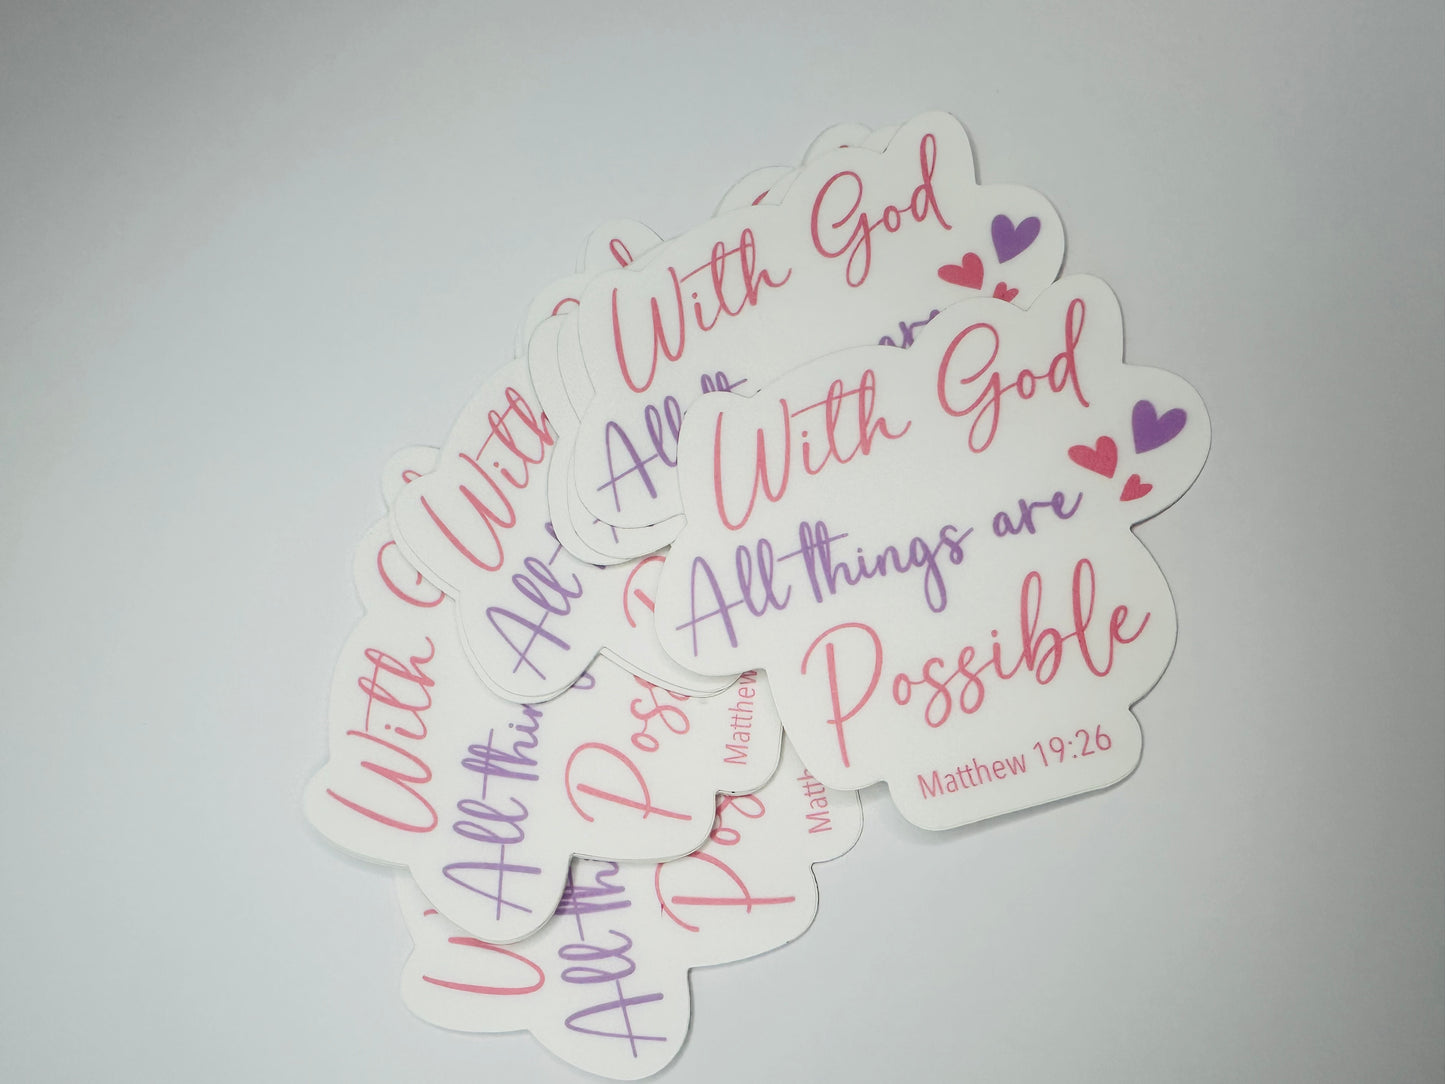 With God
All
are
With God
All things are
Possible
Matthew 19:26
With
All
With G
All thin
Poss
Matthew
All th
Pos
Matth